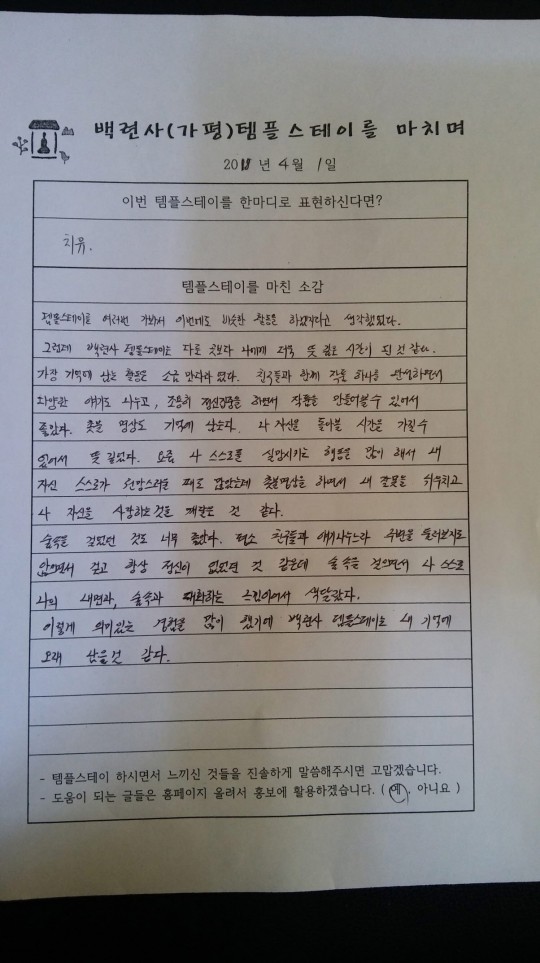 백련사(가평)템플스테이를 마치며
년 4월 1일
이번 템플스테이를 한마디로 표현하신다면?
치유.
템플스테이를 마친 소감
템플스테이를 여러번 가봐서 이번에도 비슷한 활동을 하겠지라고 생각했었다.
그런데 백련사 템플스테이는 다른 곳보다 나에게 더욱 뜻 깊은 시간이 된 것 같다.
가장 기억에 남는 활동은 소금 만다라 였다. 친구들과 함께 작품 하나를 완성하면서
다양한 얘기도 나누고, 조용히 정신집중을 하면서 작품을 만들어볼 수 있어서
좋았다. 촛불 명상도 기억에 남는다. 나 자신을 돌아볼 시간을 가질수
있어서 뜻 깊었다. 요즘 나 스스로를 실망시키는 행동을 많이 해서 내
자신 스스로가 원망스러울 때도 많았는데 촛불명상을 하면서 내 잘못을 뉘우치고
나 자신을 사랑하는것을 깨달은 것 같다.
숲속을 걸었던 것도 너무 좋았다. 평소 친구들과 얘기나누느라 주변을 둘러보지도
않으면서 걷고 항상 정신이 없었던 것 같은데 숲 속을 걸으면서 나 스스로
나의 내면과, 숲속과 대화하는 느낌이어서 색달랐다.
이렇게 의미있는 경험을 많이 했기에 백련사 템플스테이는 내 기억에
오래 남을것 같다.
- 템플스테이 하시면서 느끼신 것들을 진솔하게 말씀해주시면 고맙겠습니다.
- 도움이 되는 글들은 홈페이지 올려서 홍보에 활용하겠습니다. ( 예, 아니요 )